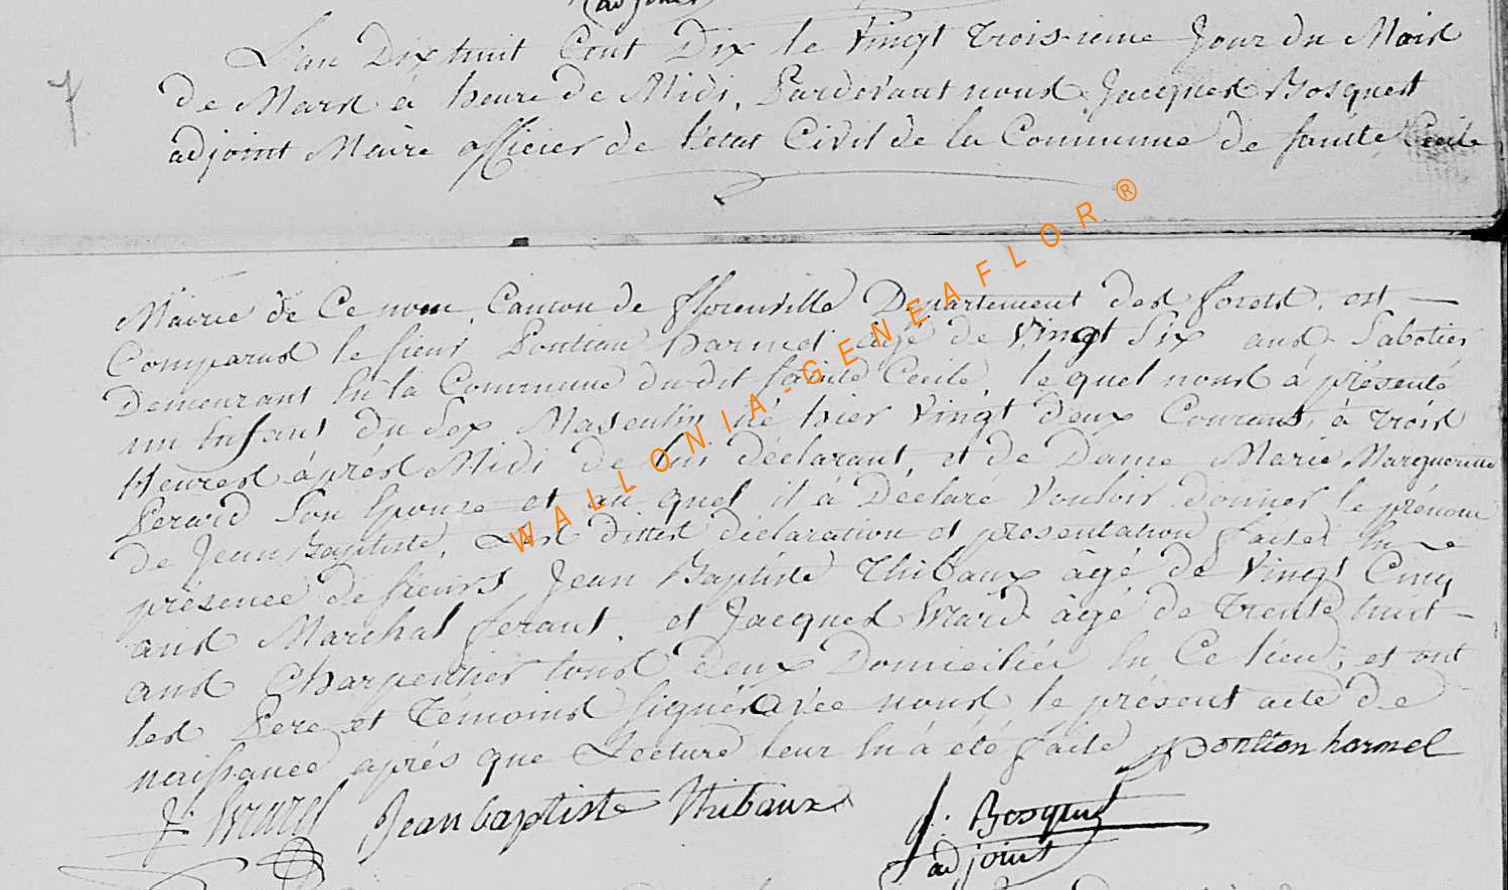 adjoint
L'an Dix huit Cent Dix le Vingt Troisieme Jour du Mois
7
de Mars a heure de Midi, Pardevant nous Jacques Bosquet
adjoint Maire officier de l'etat Civil de la Commune de sainte Cecile
Mairie de Ce nom, Canton de florenville Departement des forets, est
Comparus le sieur Pontian harmel âgé de Vingt Six ans Sabotier
Demeurant En la Commune du dit sainte Cecile, le quel nous a présenté
un Enfant du Sex Masculin né hier Vingt deux Courant, à trois
Heures après Midi de lui déclarant, et de Dame Marie Marguerite
Perard Son Epouze et au quel il à Déclaré Vouloir donner le prénom
de Jean Baptiste, Les dittes déclaration et presentation faites En
présence de sieurs Jean Baptiste Thibaux âgé de Vingt Cinq
ans Marchal ferant, et Jacques Evrard âgé de Trente huit
ans Charpentier tous deux Domiciliés En Ce lieu; et ont
les Pere et Temoins signés avec nous le présent acte de
naissance après que Lecture leur En à été faite pontian harmel
J. Jean baptiste Thibaux J. Bosquet
adjoint
WALLONIA-GENEAFLOR®